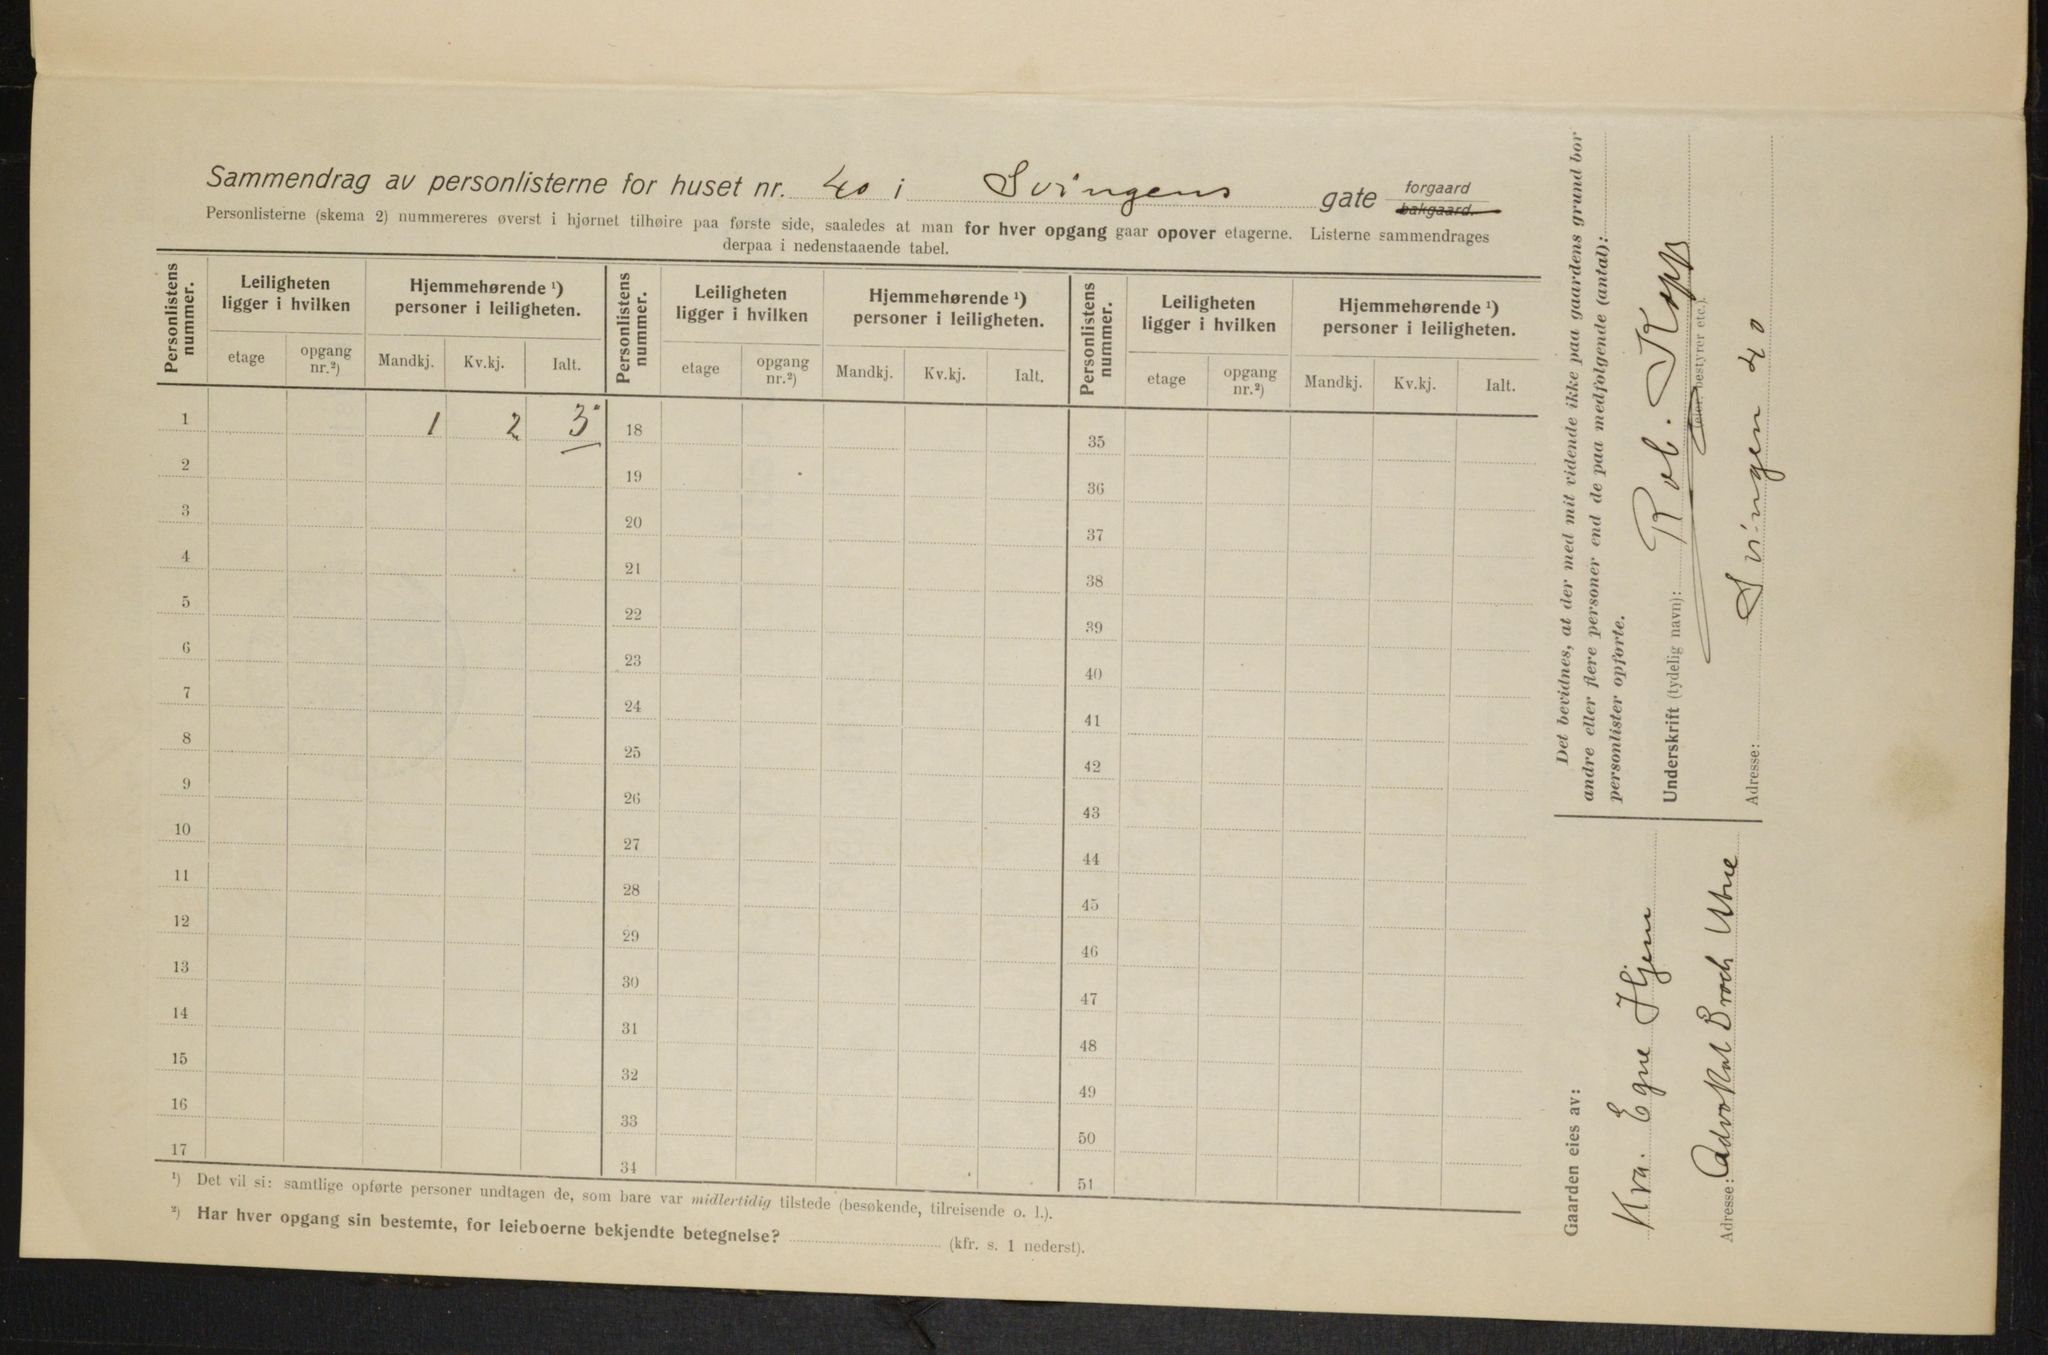 Sammendrag av personlisterne for huset nr. 40 i Svingens gate forgaard bakgaard.
Personlisterne (skema 2) nummereres øverst i hjørnet tilhøire paa første side, saaledes at man for hver opgang gaar opover etagerne. Listerne sammendrages
derpaa i nedenstaaende tabel.
Personlistens nummer. Leiligheten ligger i hvilken Hjemmehørende ¹) personer i leiligheten. Personlistens nummer. Leiligheten ligger i hvilken Hjemmehørende ¹) personer i leiligheten. Personlistens nummer. Leiligheten ligger i hvilken Hjemmehørende ¹) personer i leiligheten.
etage opgang nr.²) Mandkj. Kv.kj. Ialt. etage opgang nr.²) Mandkj. Kv.kj. Ialt. etage opgang nr.²) Mandkj. Kv.kj. Ialt.
1 1 2 3 18 35
2 19 36
3 20 37
4 21 38
5 22 39
6 23 40
7 24 41
8 25 42
9 26 43
10 27 44
11 28 45
12 29 46
13 30 47
14 31 48
15 32 49
16 33 50
17 34 51
¹) Det vil si: samtlige opførte personer undtagen de, som bare var midlertidig tilstede (besøkende, tilreisende o. l.).
²) Har hver opgang sin bestemte, for leieboerne bekjendte betegnelse? (kfr. s. 1 nederst).
Det bevidnes, at der med mit vidende ikke paa gaardens grund bor
andre eller flere personer end de paa medfølgende (antal):
personlister opførte.
Underskrift (tydelig navn): Rob. Kopp
(eier, bestyrer etc.).
Adresse: Svingen 40
Gaarden eies av:
Kva. Egne Hjem
Adresse: Advokat Broch Utne